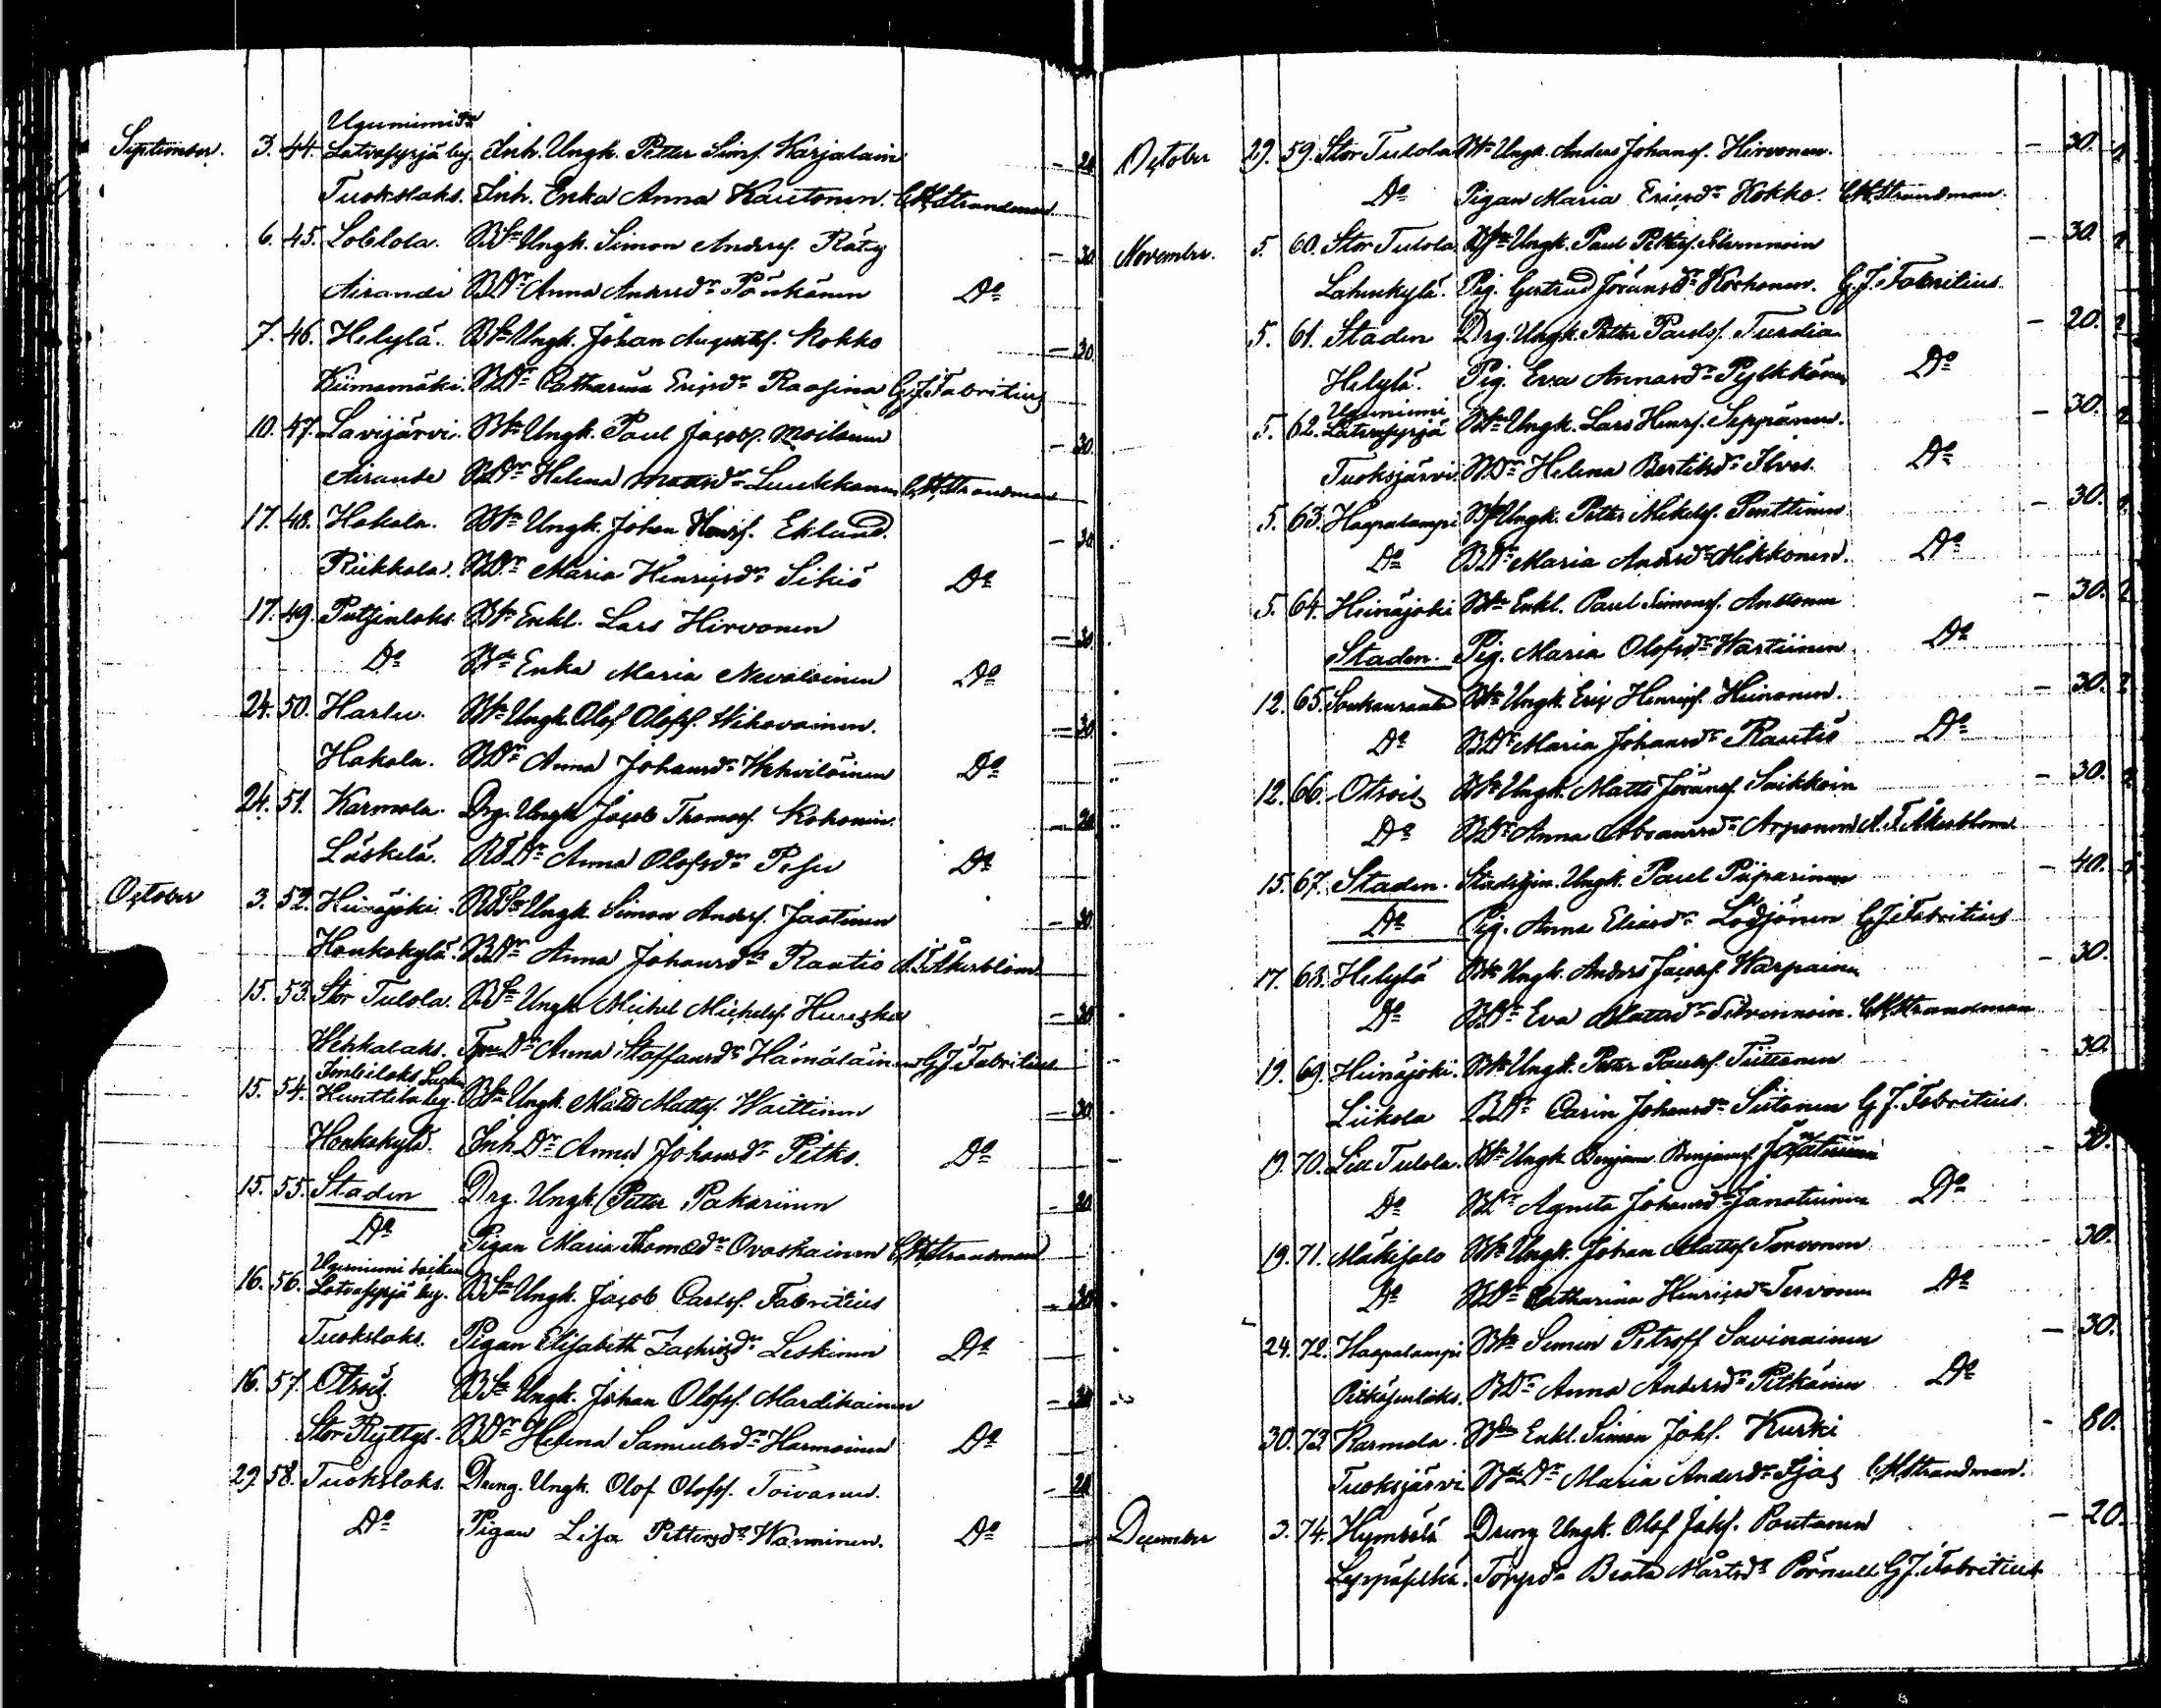 Ugunimi Sn
September. 3. 44. Latvasyrjä by. Inh. Ungk. Petter Simsf. Karjalain — 20
Tuokslaks. Inh. Enka Anna Kautonen. C.H. Strandman.
6. 45. Loblola. BSn Ungk. Simon Andersf. Räty — 30.
Airanda BDr Anna Andersdr Pönkänen Do
7. 46. Helylä. BSn Ungk. Johan Augustsf. Kokko — 30.
Kiimamäki. BDr Catharina Ericsdr Raasina G. J. Fabritius
10. 47. Lavijärvi. Bn Ungk. Paul Jacobsf. Moilanen — 30.
Airanda BDr Helena Mattsdr Luukkanen C.H. Strandman
17. 48. Hakala. Bn Ungk. Johan Henrsf. Eklund. — 30
Riekkala. BDr Maria Henricsdr Sikiö Do
17. 49. Putsinlaks. Bn Enkl. Lars Hirvonen — 30.
Do Bde Enka Maria Nevalainen Do
24. 50. Harlu. Bn Ungk. Olof Olofsf. Wihavainen. — 30.
Hakala. BDr Anna Johansdr Wehviläinen Do
24. 51. Karmola. Drg. Ungk. Jacob Thomasf. Kohonen. — 20
Läskelä. BDr Anna Olofsdr Pesu Do
October 3. 52. Heinäjoki. BSn Ungk. Simon Andersf. Jaatinen — 30.
Honkakylä. BDr Anna Johansdr Rautio A. F. Åkerblom
15. 53. Stor Tulola. BSn Ungk. Michel Michelsf. Hureska — 30
Wehkalaks. Dr Anna Staffansdr Hämäläinen G. J. Fabritius
Imbilaks Socken
15. 54. Hunttila by. BSn Ungk. Matts Mattsf. Waittinen — 30.
Honkakylä. Inh. Dr Anna Johansdr Pitko. Do
15. 55. Staden Drg. Ungk. Petter Pakarinen — 20.
Do Pigan Maria Thomædr Ovaskainen C.H. Strandman
Ugunimi socken
16. 56. Latvasyrjä by. BSn Ungk. Jacob Carlsf. Fabritius — 30
Tuokslaks. Pigan Elisabeth Zachrisdr Leskinen Do
16. 57. Otsois BSn Ungk. Johan Olofsf. Mardikainen — 30
Stor Ryttys. BDr Helena Samuelsdr Harmoinen Do
29. 58. Tuokslaks. Dreng. Ungk. Olof Olofsf. Toivanen. — 20
Do Pigan Lisa Pettersdr Wänninen. Do
October 29. 59. Stor Tulola Bn Ungk. Anders Johansf. Hirvonen. — 30.
Do Pigan Maria Ericsdr Kokko. C.H. Strandman.
November. 5. 60. Stor Tulola. BSn Ungk. Paul Pettersf. Silvennoin — 30.
Lahenkylä. Pig. Gertrud Göransdr Korhonen. G. J. Fabritius.
5. 61. Staden Drg. Ungk. Petter Paulsf. Turdia — 20.
Helylä. Pig. Eva Annasdr Pylkkönen Do
Ugunimi
5. 62. Latvasyrjä Bn Ungk. Lars Henrsf. Seppänen. — 30.
Tuoksjärvi. BDr Helena Bertilsdr Ilves. Do
5. 63. Haapalampi BSn Ungk. Petter Mickelsf. Penttinen — 30.
Do BDr Maria Andersdr Mikkonen. Do
5. 64. Heinäjoki Bn Enkl. Paul Simonsf. Anttonen — 30.
Staden. Pig. Maria Olofsdr Wartiinen. Do
12. 65. Soukanranta Bn Ungk. Eric Henricsf. Heinonen. — 30.
Do BDr Maria Johansdr Rautio Do
12. 66. Otsois BSn Ungk. Matts Göransf. Saikkoin — 30.
Do BDr Anna Abramsdr Arponen A. F. Åkerblom.
15. 67. Staden. Ungk. Paul Piiparinen — 40.
Do Pig. Anna Eliasdr Lodjönen G. J. Fabritius
17. 68. Helylä Bn Ungk. Anders Jacobsf. Warpainen — 30.
Do BDr Eva Mattsdr Silvennoin. C.H. Strandman
19. 69. Heinäjoki. Bn Ungk. Petter Paulsf. Tiittanen — 30.
Liikola BDr Carin Johansdr Siitonen G. J. Fabritius.
19. 70. Lill Tulola. Bn Ungk. Benjam. Benjamsf. Janatuinen — 30.
Do BDr Agneta Johansdr Janatuinen Do
19. 71. Mäkisalo Bn Ungk. Johan Mattsf. Tervonen — 30.
Do BDr Catharina Henricsdr Tervonen Do
24. 72. Haapalampi Bn Semen Petroff Savinainen — 30.
Pitkäjenlaks. BDr Anna Andersdr Pitkänen Do
30. 73. Karmola. Bde Enkl. Simon Johsf. Kurki — 80.
Tuoksjärvi BdeDr Maria Andersdr C.H. Strandman.
December 3. 74. Hympölä Dreng Ungk. Olof Johsf. Pontanen — 20.
Leppäselkä. Torpsdr Beata Mårtsdr Pörnull G. J. Fabritius.